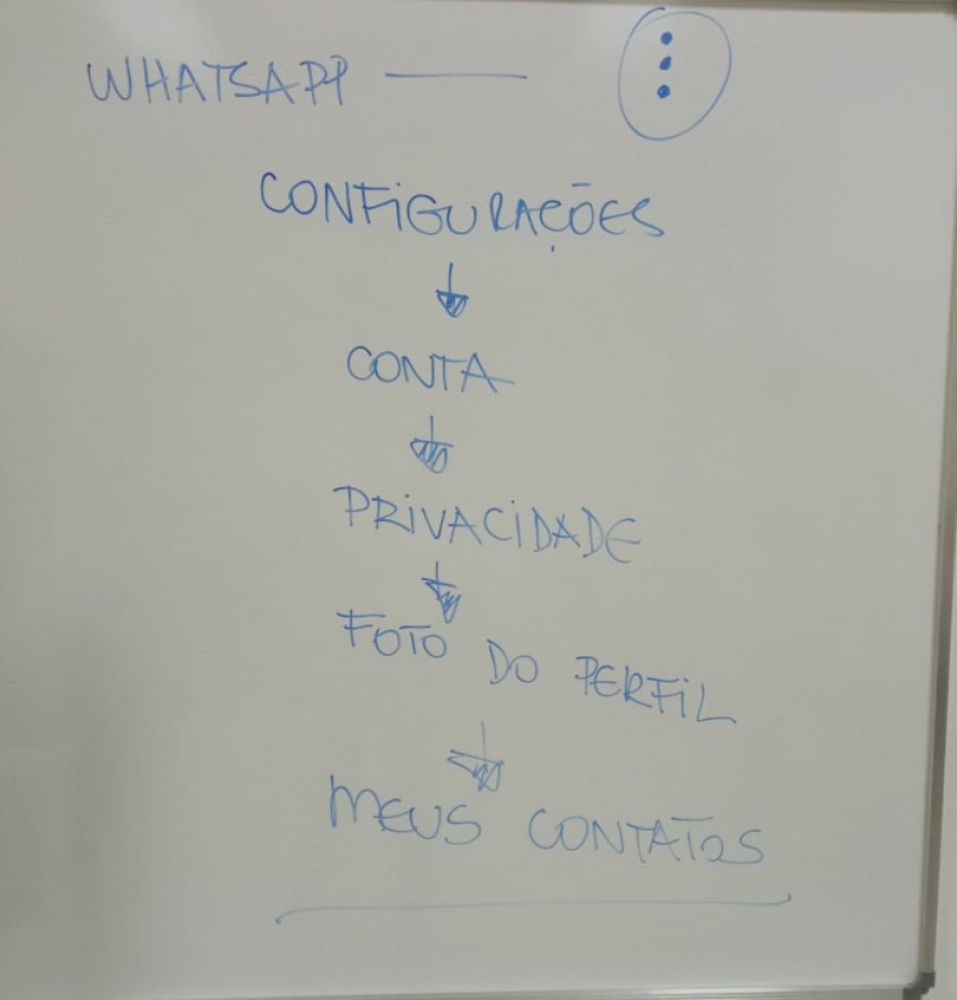 WHATSAPP
CONFIGURAÇÕES
CONTA
PRIVACIDADE
FOTO DO PERFIL
MEUS CONTATOS